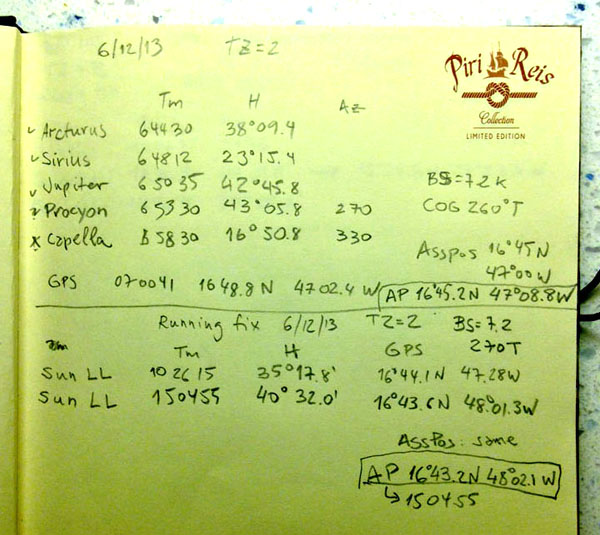 6/12/13 TZ=2
Piri Reis
Collection
LIMITED EDITION
Tm H Az
Arcturus 64430 38°09.4
Sirius 64812 23°15.4
Jupiter 65035 42°45.8
Procyon 65330 43°05.8 270
Capella 65830 16°50.8 330
BS=7.2k
COG 260°T
Asspos 16°45N
47°00W
GPS 070041 1648.8N 4702.4W
AP 16°45.2N 47°08.8W
Running fix 6/12/13 TZ=2 BS=7.2
Tm H GPS 270T
Sun LL 102615 35°17.8' 16°44.1N 47.28W
Sun LL 150455 40°32.0' 16°43.6N 48°01.3W
AssPos: same
AP 16°43.2N 48°02.1W
↳150455